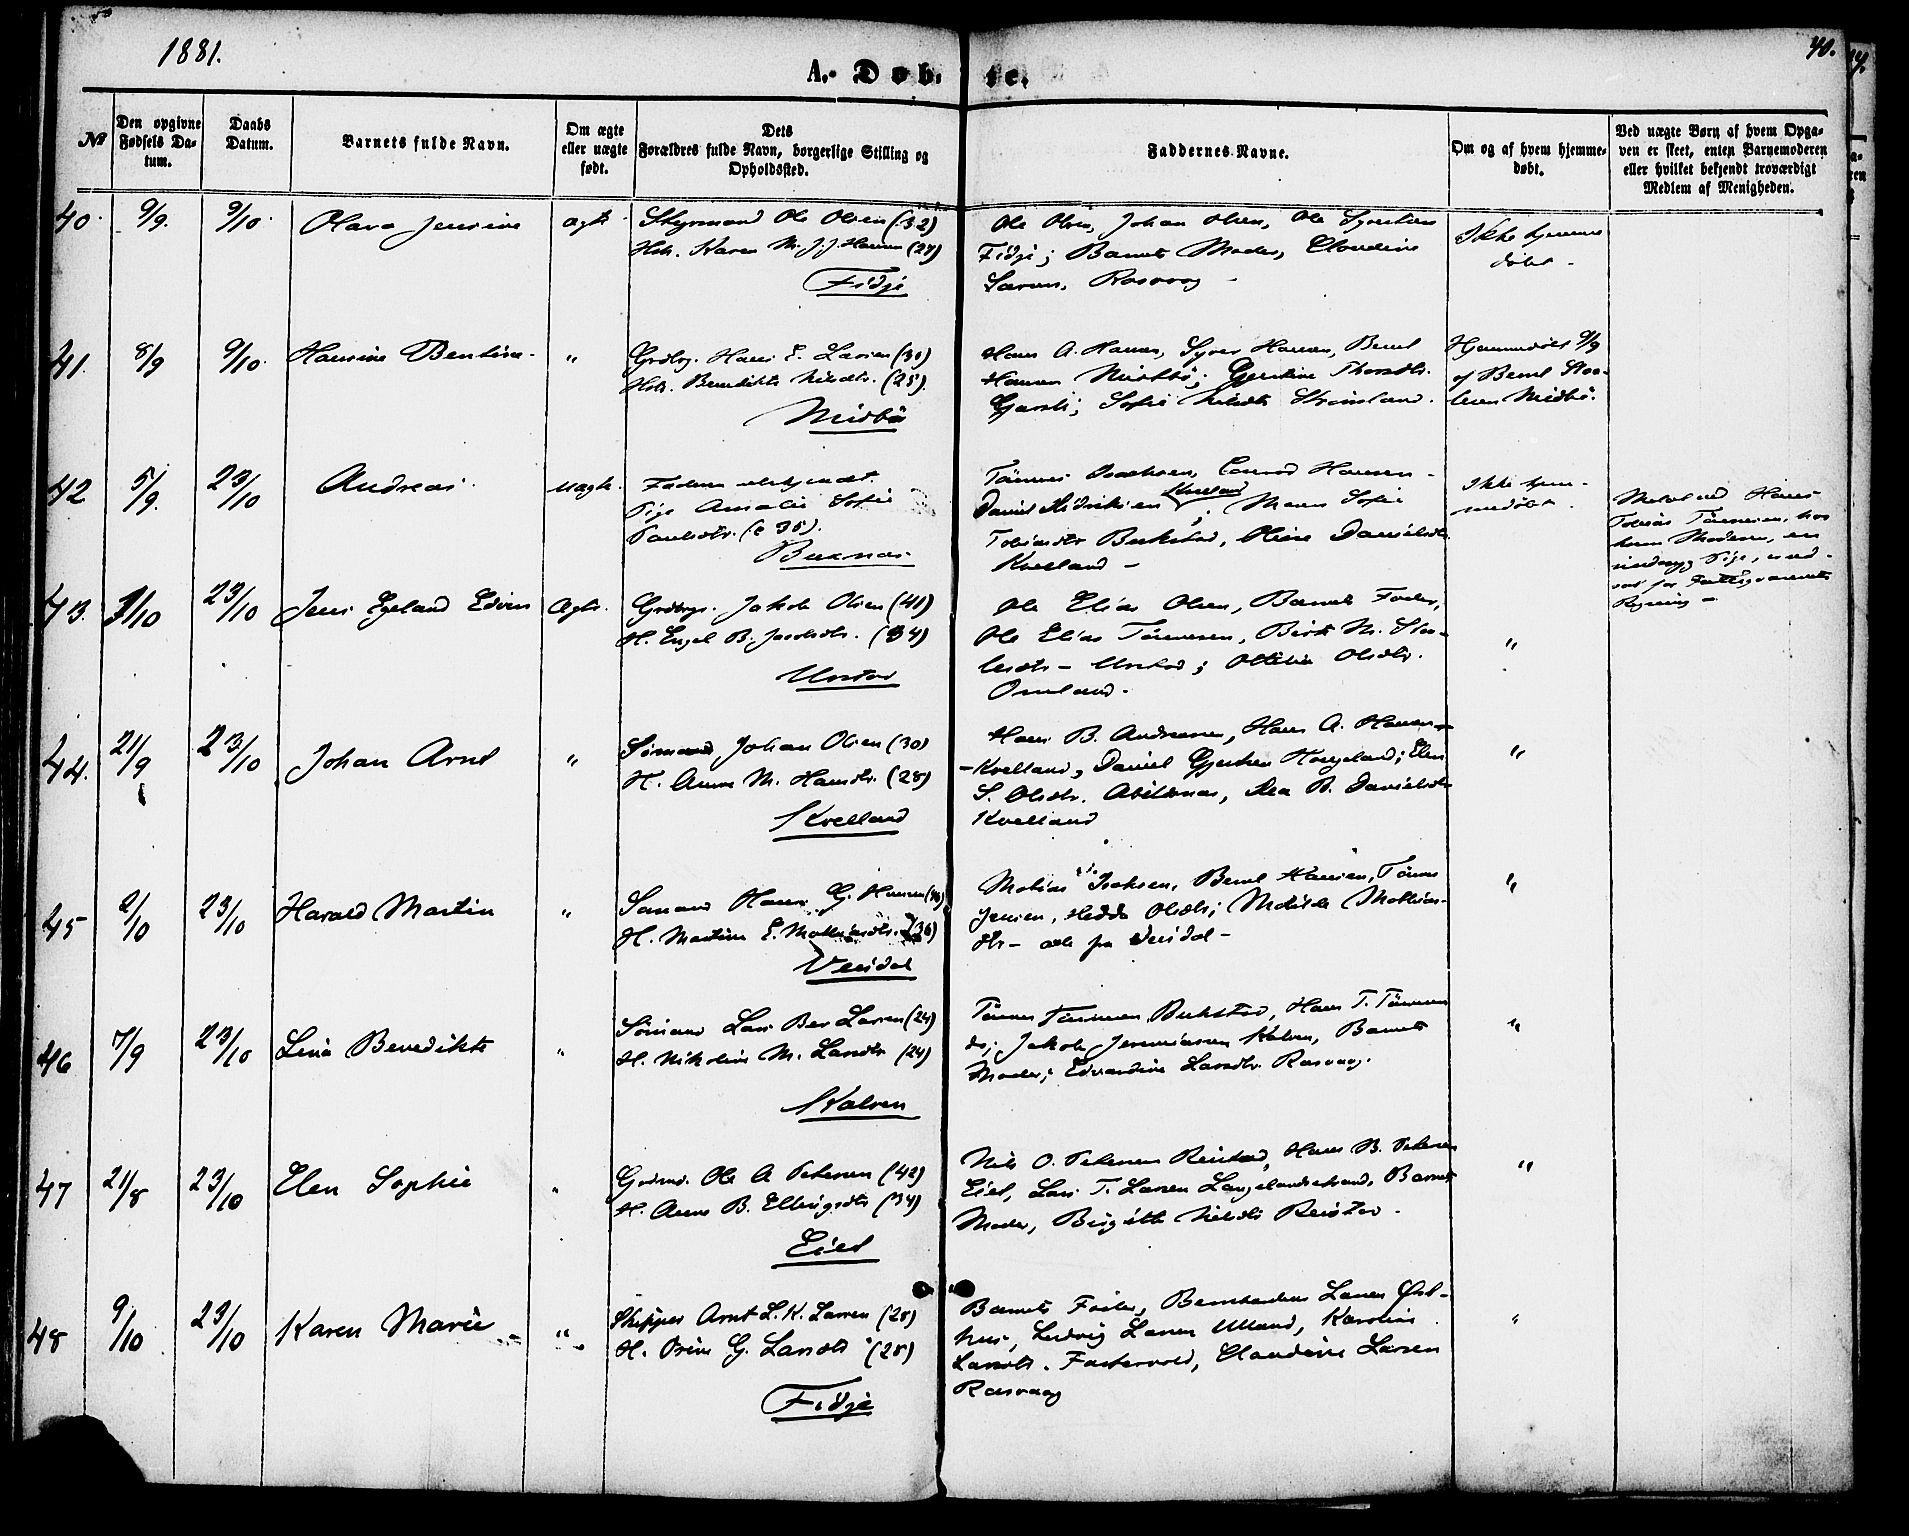 1881.
40.
A. Døb-te.
№
Den opgivne Fødsels Datum.
Daabs Datum.
Barnets fulde Navn.
Om ægte eller uægte født.
Dets Forældres fulde Navn, borgerlige Stilling og Opholdssted.
Faddernes Navne.
Om og af hvem hjemmedøbt.
Ved uægte Børn af hvem Opgaven er skeet, enten Barnemoderen eller hvilket bekjendt troværdigt Medlem af Menigheden.
40. 9/9. 9/10. Olava Jensine ægte
Styrmand Ole Olsen (32)
Hstr. Karen M. J. J. Hansen (27)
Fidje
Ole Olsen, Johan Olsen, Ole Syvertsen
Fidje; Barnets Moder, Claudine
Larsen, Rasvaag -
Ikke hjemme
døbt -
41. 8/9 9/10. Hansine Bentine. "
Grdbrg. Hans E. Larsen (30)
Hstr. Benedikte Nilsdtr. (25).
Midbø
Hans A. Hansen, Syver Hansen, Bernt
Hansen Midtbø; Gjertine Thorsdtr.
Sofie Nilsdtr
Hjemmedøbt 9/9
af Bernt
Midbø.
42 5/9. 23/10 Andreas. uægte.
Faderen ubekjendt.
Pige Amalie Sofie
Paulsdtr. (35).
Buxnæs
Tønnes Isachsen, Conrad Hansen -
Daniel Didriksen Kvelland, Maren Sofie
Tobiasdtr Berkstad, Oline Danielsdtr
Kvelland -
Ikke hjem-
medøbt.
Hans
Tobias Tønnesen, hos
hvem Moderen, en
Pige, er
for Fattigvæsenets
Regning -
43. 1/10 23/10 Jens Egeland Edvin Ægte.
Grdbrgr. Jakob Olsen (41)
H. Engel B. Jacobsdtr. (34)
Urstad
Ole Elias Olsen, Barnets Fader,
Ole Elias Tønnesen, Birte M. Sta-
lesdtr - Urstad; Ottilia Olsdtr.
Omland.
"
44. 21/9 23/10 Johan Arnt "
Sømand Johan Olsen (30)
H. Anna M. Hansdtr. (28)
Kvelland
Hans B. Andreasen, Hans A. Hansen -
- Kvelland, Daniel Gjertsen Haugeland; Elen
S. Olsdtr. Abilsnæs, Rea B. Danielsdtr
Kvelland
"
45 2/10 23/10 Harald Martin "
Sømand Hans G. Hansen
H. Martine E. Mathiasdtr. (36)
Veisdal
Mathias Isaksen, Bernt Hansen, Tønnes
Jensen, Hedda Olsdtr; Matilde Mathias-
dtr - alle fra Veisdal -
"
46 7/9 23/10 Lina Benedikte "
Sømand Lars Ber Larsen (24)
H. Nikoline M. Larsdtr (24)
Kalven
Tønnes Tønnesen Berkstad, Hans T. Tønnesen
do; Jakob Jeremiassen Kalven, Barnets
Moder; Edvardine Larsdtr. Rasvaag.
"
47 21/8 23/10 Elen Sophie "
Grdmd. Ole A Petersen (42)
H. Anne B. Ellingsdtr (34)
Eiet
Nils O. Petersen Reistad, Hans B. Petersen
Eiet, Lars T. Larsen Langelandsstrand, Barnets
Moder, Birgitte Nilsdtr Reistad -
"
48 9/10 23/10 Karen Marie "
Skipper Arnt L. K. Larsen (28)
H. Trine G. Larsdtr (28)
Fidje
Barnets Fader, Berntandreas Larsen Øst-
hus, Ludvig Larsen Ulland, Karoline
Larsdtr. Fastervold, Claudine Larsen
Rasvaag
"